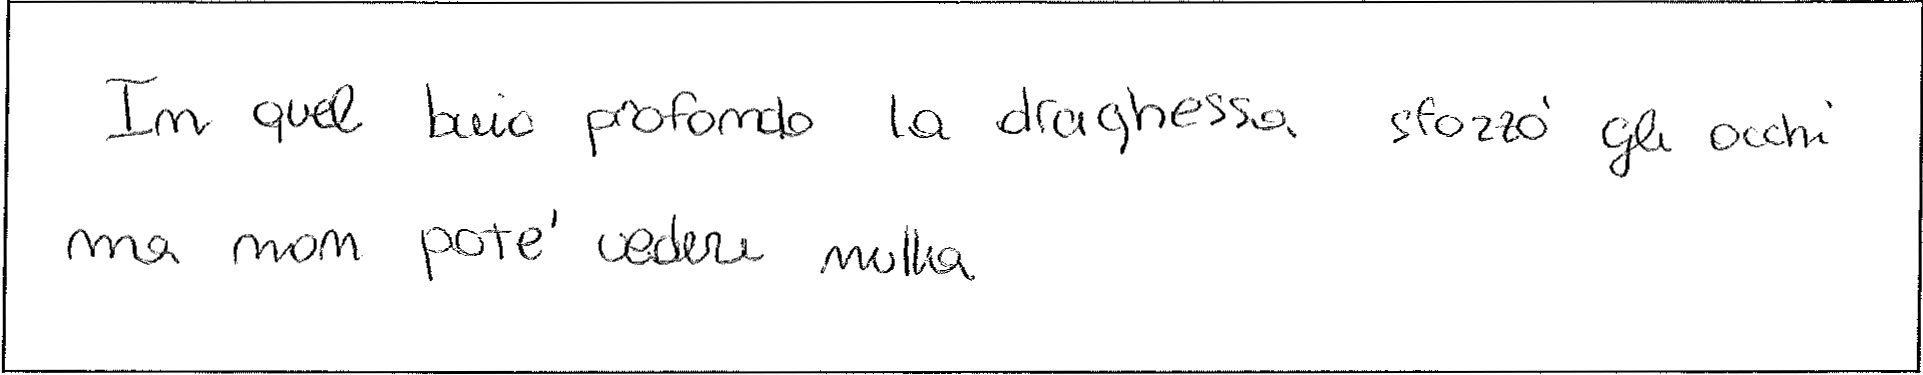 In quel buio profondo la draghessa sfozzò gli occhi
ma non potè vedere nulla